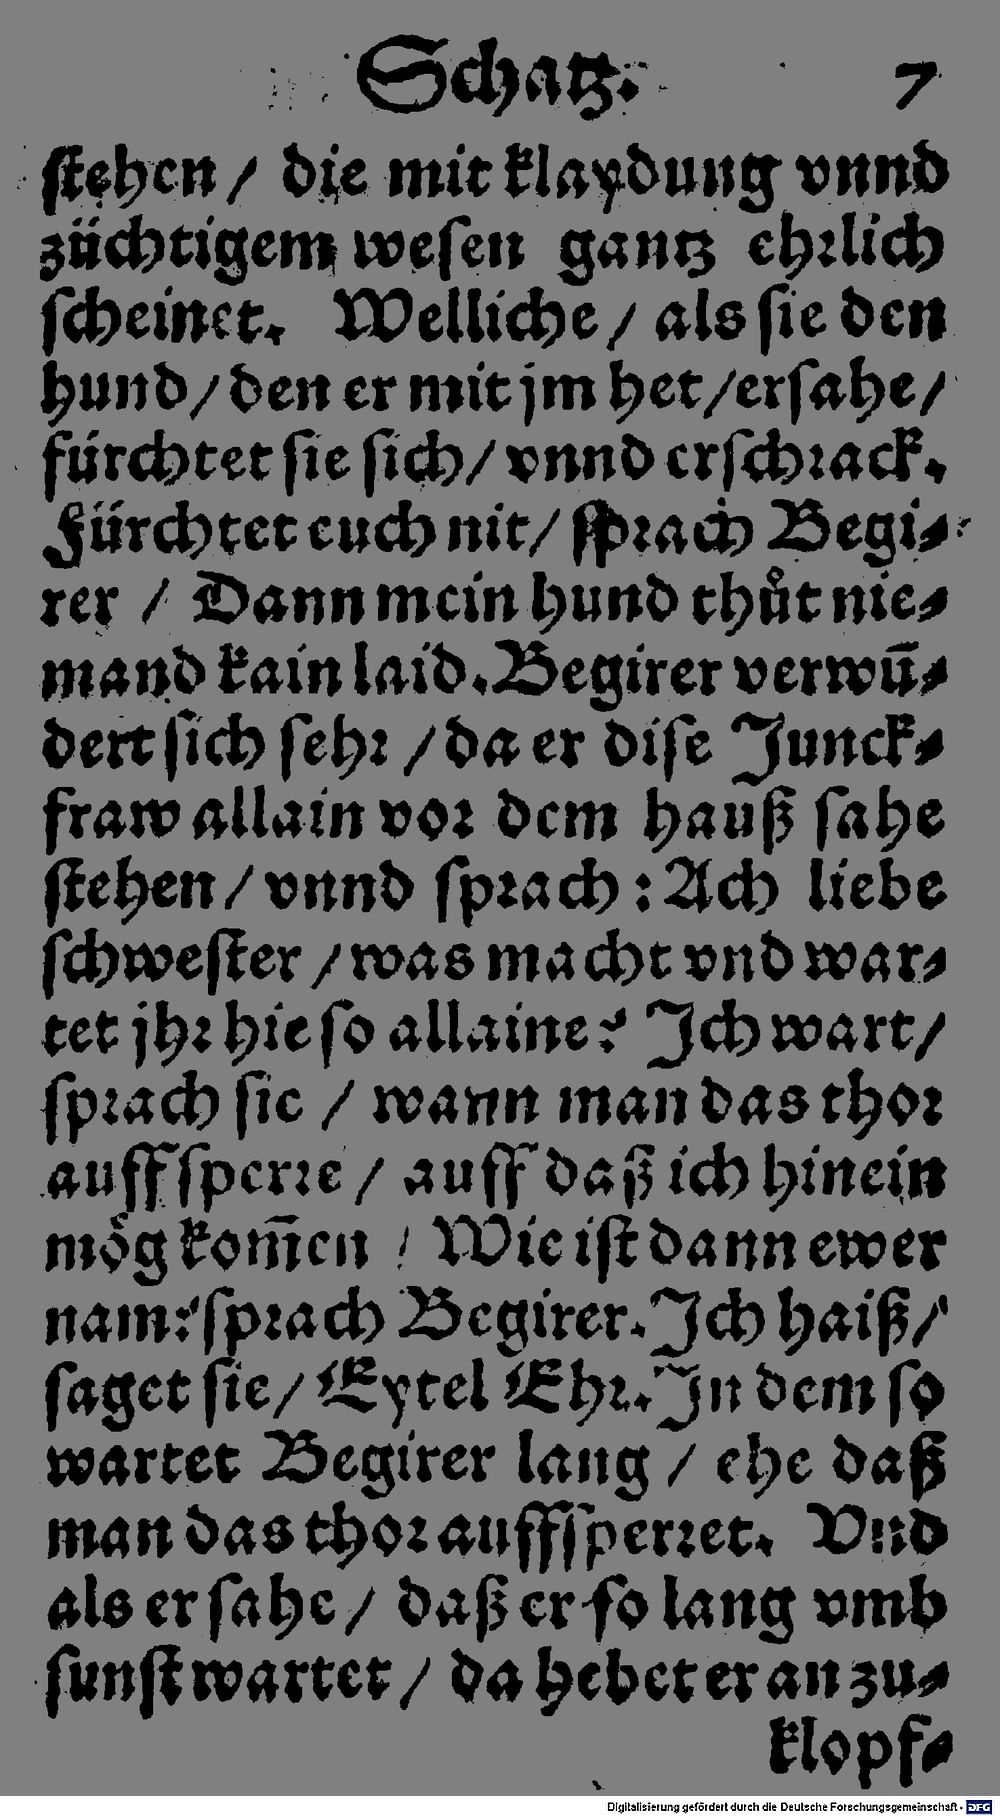 Schatz. 7
ſtehen / die mit klaydung vnnd
züchtigem weſen gantz ehrlich
ſcheinet. Welliche / als ſie den
hund / den er mit jm het / erſahe /
fürchtet ſie ſich / vnnd erſchrack.
Fürchtet euch nit / ſprach Begi⸗
rer / Dann mein hund thůt nie⸗
mand kain laid. Begirer verwū⸗
dert ſich ſehr / da er diſe Junck⸗
fraw allain vor dem hauß ſahe
ſtehen / vnnd ſprach : Ach liebe
ſchweſter / was macht vnd war⸗
tet jhr hie ſo allaine? Ich wart /
ſprach ſie / wann man das thor
auffſperre / auff daß ich hinein
mög kom̄en / Wie iſt dann ewer
nam? ſprach Begirer. Ich haiß /
ſaget ſie / Eytel Ehr. In dem ſo
wartet Begirer lang / ehe daß
man das thor auffſperret. Vnd
als er ſahe / daß er ſo lang vmb
ſunſt wartet / da hebet er an zu⸗
klopf⸗
Digitalisierung gefördert durch die Deutsche Forschungsgemeinschaft - DFG